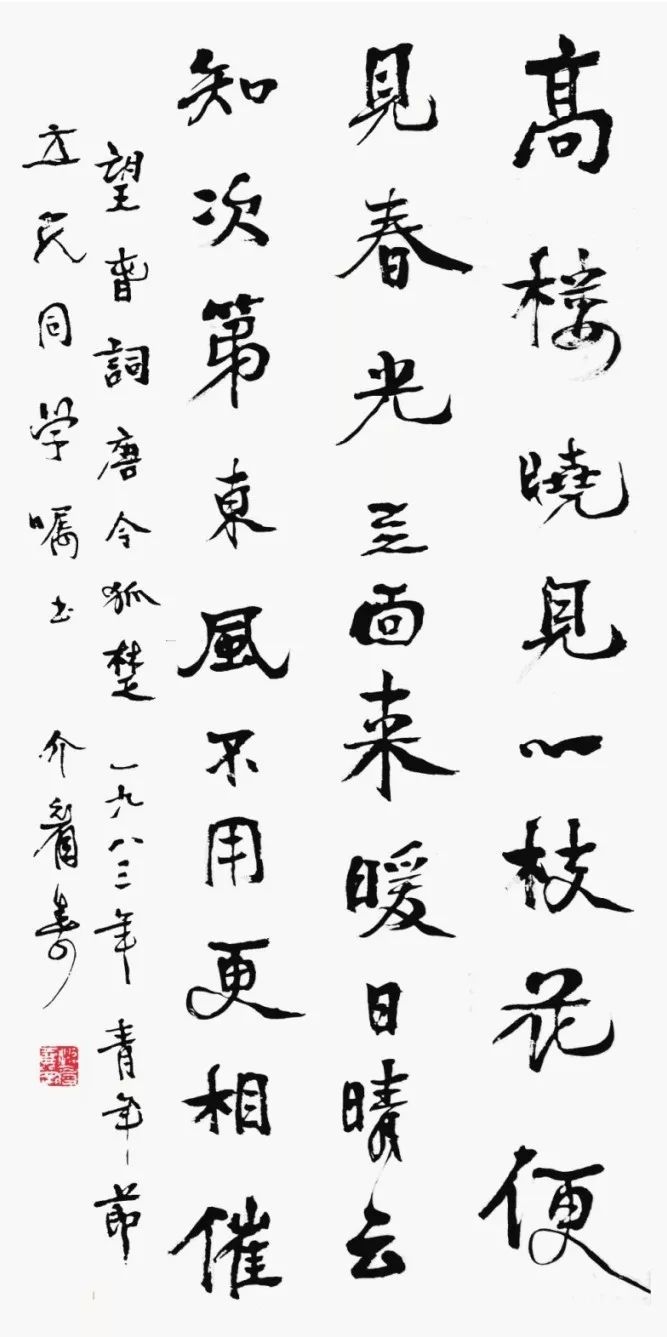 高樓曉見一枝花便
見春光亖面来暖日晴云
知次第東風不用更相催
望春詞唐令狐楚 一九八三年青年節
民同学嘱书 介眉壽